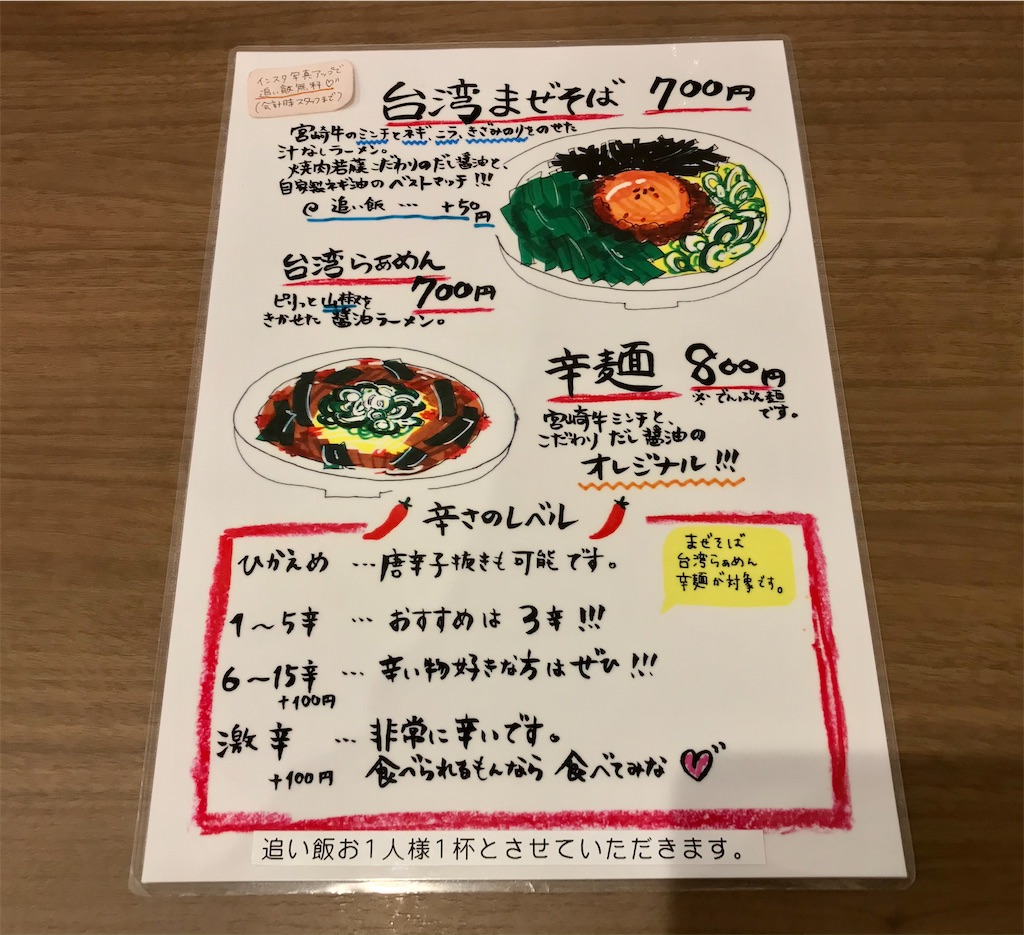 インスタ写真アップで
追い飯無料♡
(会計時スタッフまで)
台湾まぜそば 700円
宮崎牛のミンチとネギ、ニラ、きざみのりをのせた
汁なしラーメン。
焼肉若藤こだわりのだし醤油と、
自家製ネギ油のベストマッチ!!!
@ 追い飯 … +50円
台湾らぁめん
700円
ピリっと山椒を
きかせた 醤油ラーメン。
辛麺 800円
※でんぷん麺
です。
宮崎牛ミンチと、
こだわりだし醤油の
オレジナル!!!
辛さのレベル
まぜそば
台湾らぁめん
辛麺が対象です。
ひかえめ …唐辛子抜きも可能です。
1〜5辛 … おすすめは 3辛!!!
6〜15辛 … 辛い物好きな方はぜひ!!!
+100円
激辛 … 非常に辛いです。
+100円 食べられるもんなら 食べてみな♡
追い飯お1人様1杯とさせていただきます。